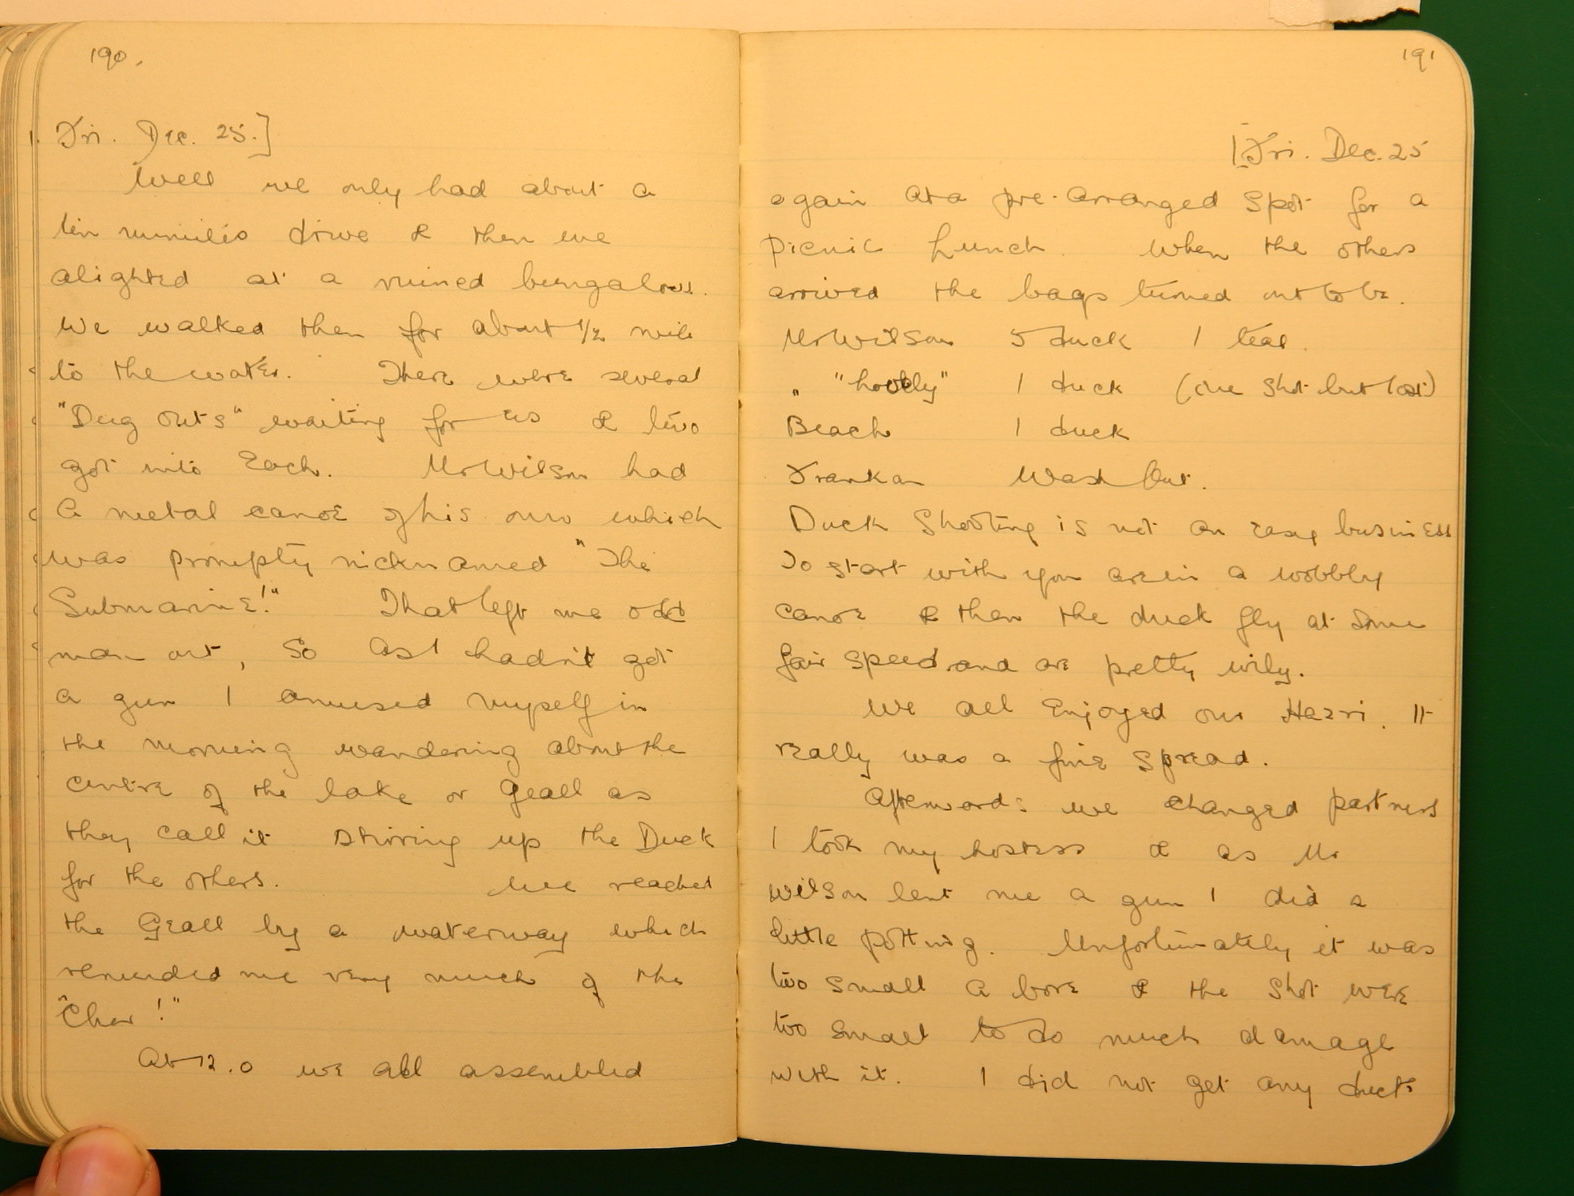 190.
Fri. Dec. 25.]
Well we only had about a
ten minutes drive & then we
alighted at a ruined bungalow.
We walked then for about 1/2 mile
to the water. There were several
"Dug outs" waiting for us & two
got into Each. Mr Wilson had
A metal canoe of his own which
was promptly nicknamed "The
Submarine!" That left me odd
man out, So as I hadn't got
a gun I amused myself in
the morning wandering about the
centre of the lake or Geall as
they call it stirring up the Duck
for the others. We reached
the Geall by a waterway which
reminded me very much of the
"Cher!"
At 12.0 we all assembled
191
[Fri. Dec. 25
again at a pre-arranged Spot for a
Picnic Lunch. When the others
arrived the bags turned out to be.
Mr Wilson 5 duck 1 teal.
" " 1 duck (one shot but lost)
Beach 1 duck
Frankan Wash Out.
Duck Shooting is not an easy business
To start with you are in a wobbly
canoe & then the duck fly at some
fair speed and are pretty wily.
We all Enjoyed our Hazri. It
really was a fine spread.
Afterwards we changed partners
I took my hostess & as Mr
Wilson lent me a gun I did a
little potting. Unfortunately it was
too small a bore & the shot were
too small to do much damage
with it. I did not get any ducks